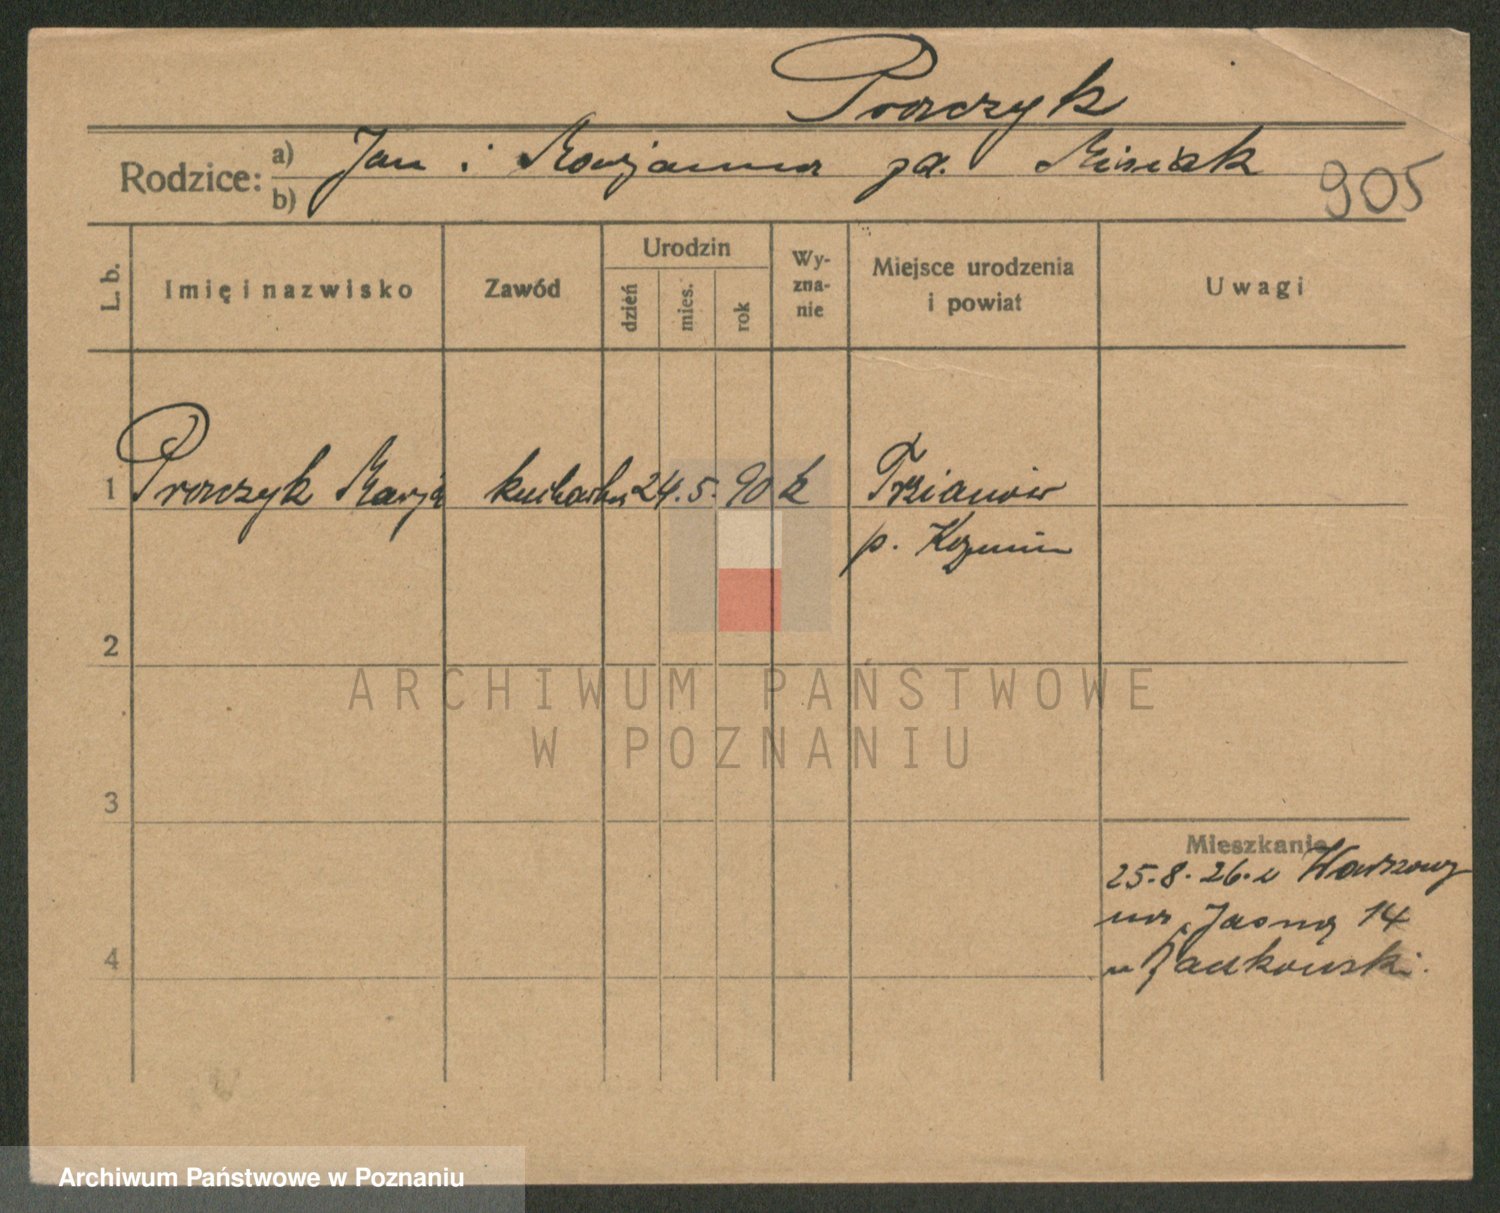 Prorczyk
Rodzice: a) Jan i Marjanna zd. Misiak
b)
905
L. b. Imię i nazwisko Zawód Urodzin dzień mies. rok Wyznanie Miejsce urodzenia i powiat Uwagi
1 Prorczyk Marja kucharka 24. 5. 90 k Trzianów
p. Kozmin
2
3
4
Mieszkanie
25.8.26. z Warszawy
na Jasną 14
u Jackowski.
ARCHIWUM PAŃSTWOWE
W POZNANIU
Archiwum Państwowe w Poznaniu